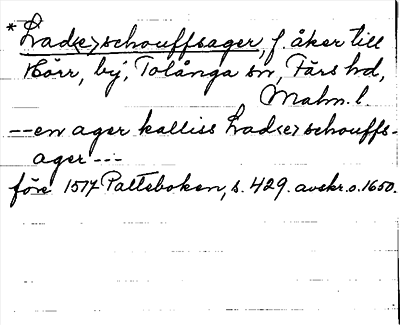 *Lad<e>schouffsager, f. åker till
Körr, by, Tolånga sn, Färs hd,
Malm. l.
-- en ager kalliss Lad<e>schouffs-
ager ---
före 1517 Palteboken, s. 429. avskr. o. 1650.